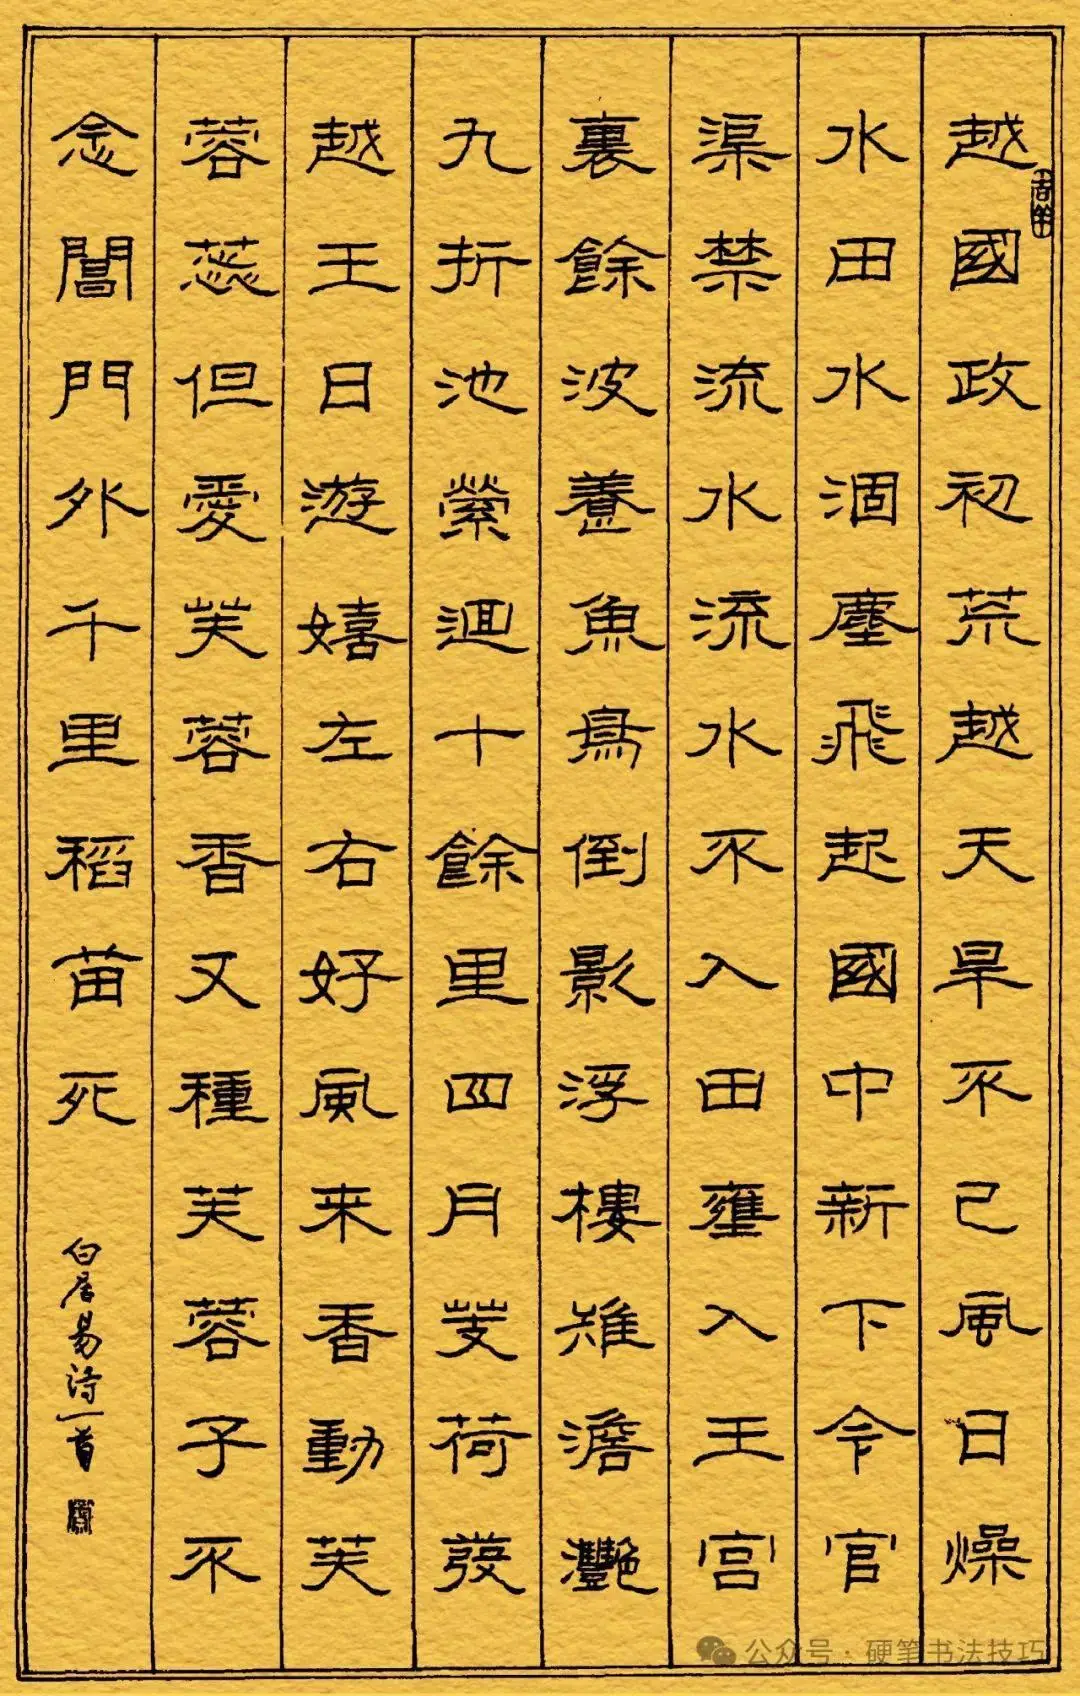 越國政初荒越天旱不已風日燥
水田水涸塵飛起國中新下令官
渠禁流水流水不入田壅入王宫
裏餘波養魚鳥倒影浮樓雉澹灔
九折池縈迴十餘里四月芰荷發
越王日遊嬉左右好風来香動芙
蓉蕊但愛芙蓉香又種芙蓉子不
念閶門外千里稻苗死
白居易诗一首
公众号·硬笔书法技巧